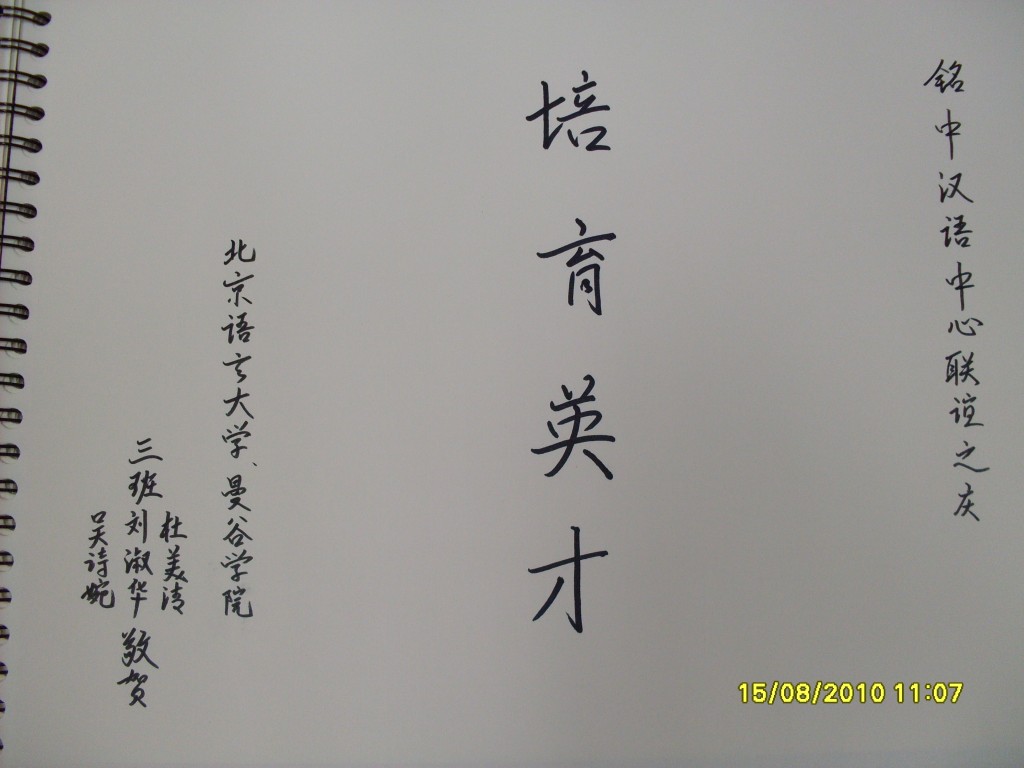 铭中汉语中心联谊之庆
培育英才
北京语言大学、曼谷学院
杜美清
三班刘淑华敬贺
吴诗婉
15/08/2010 11:07